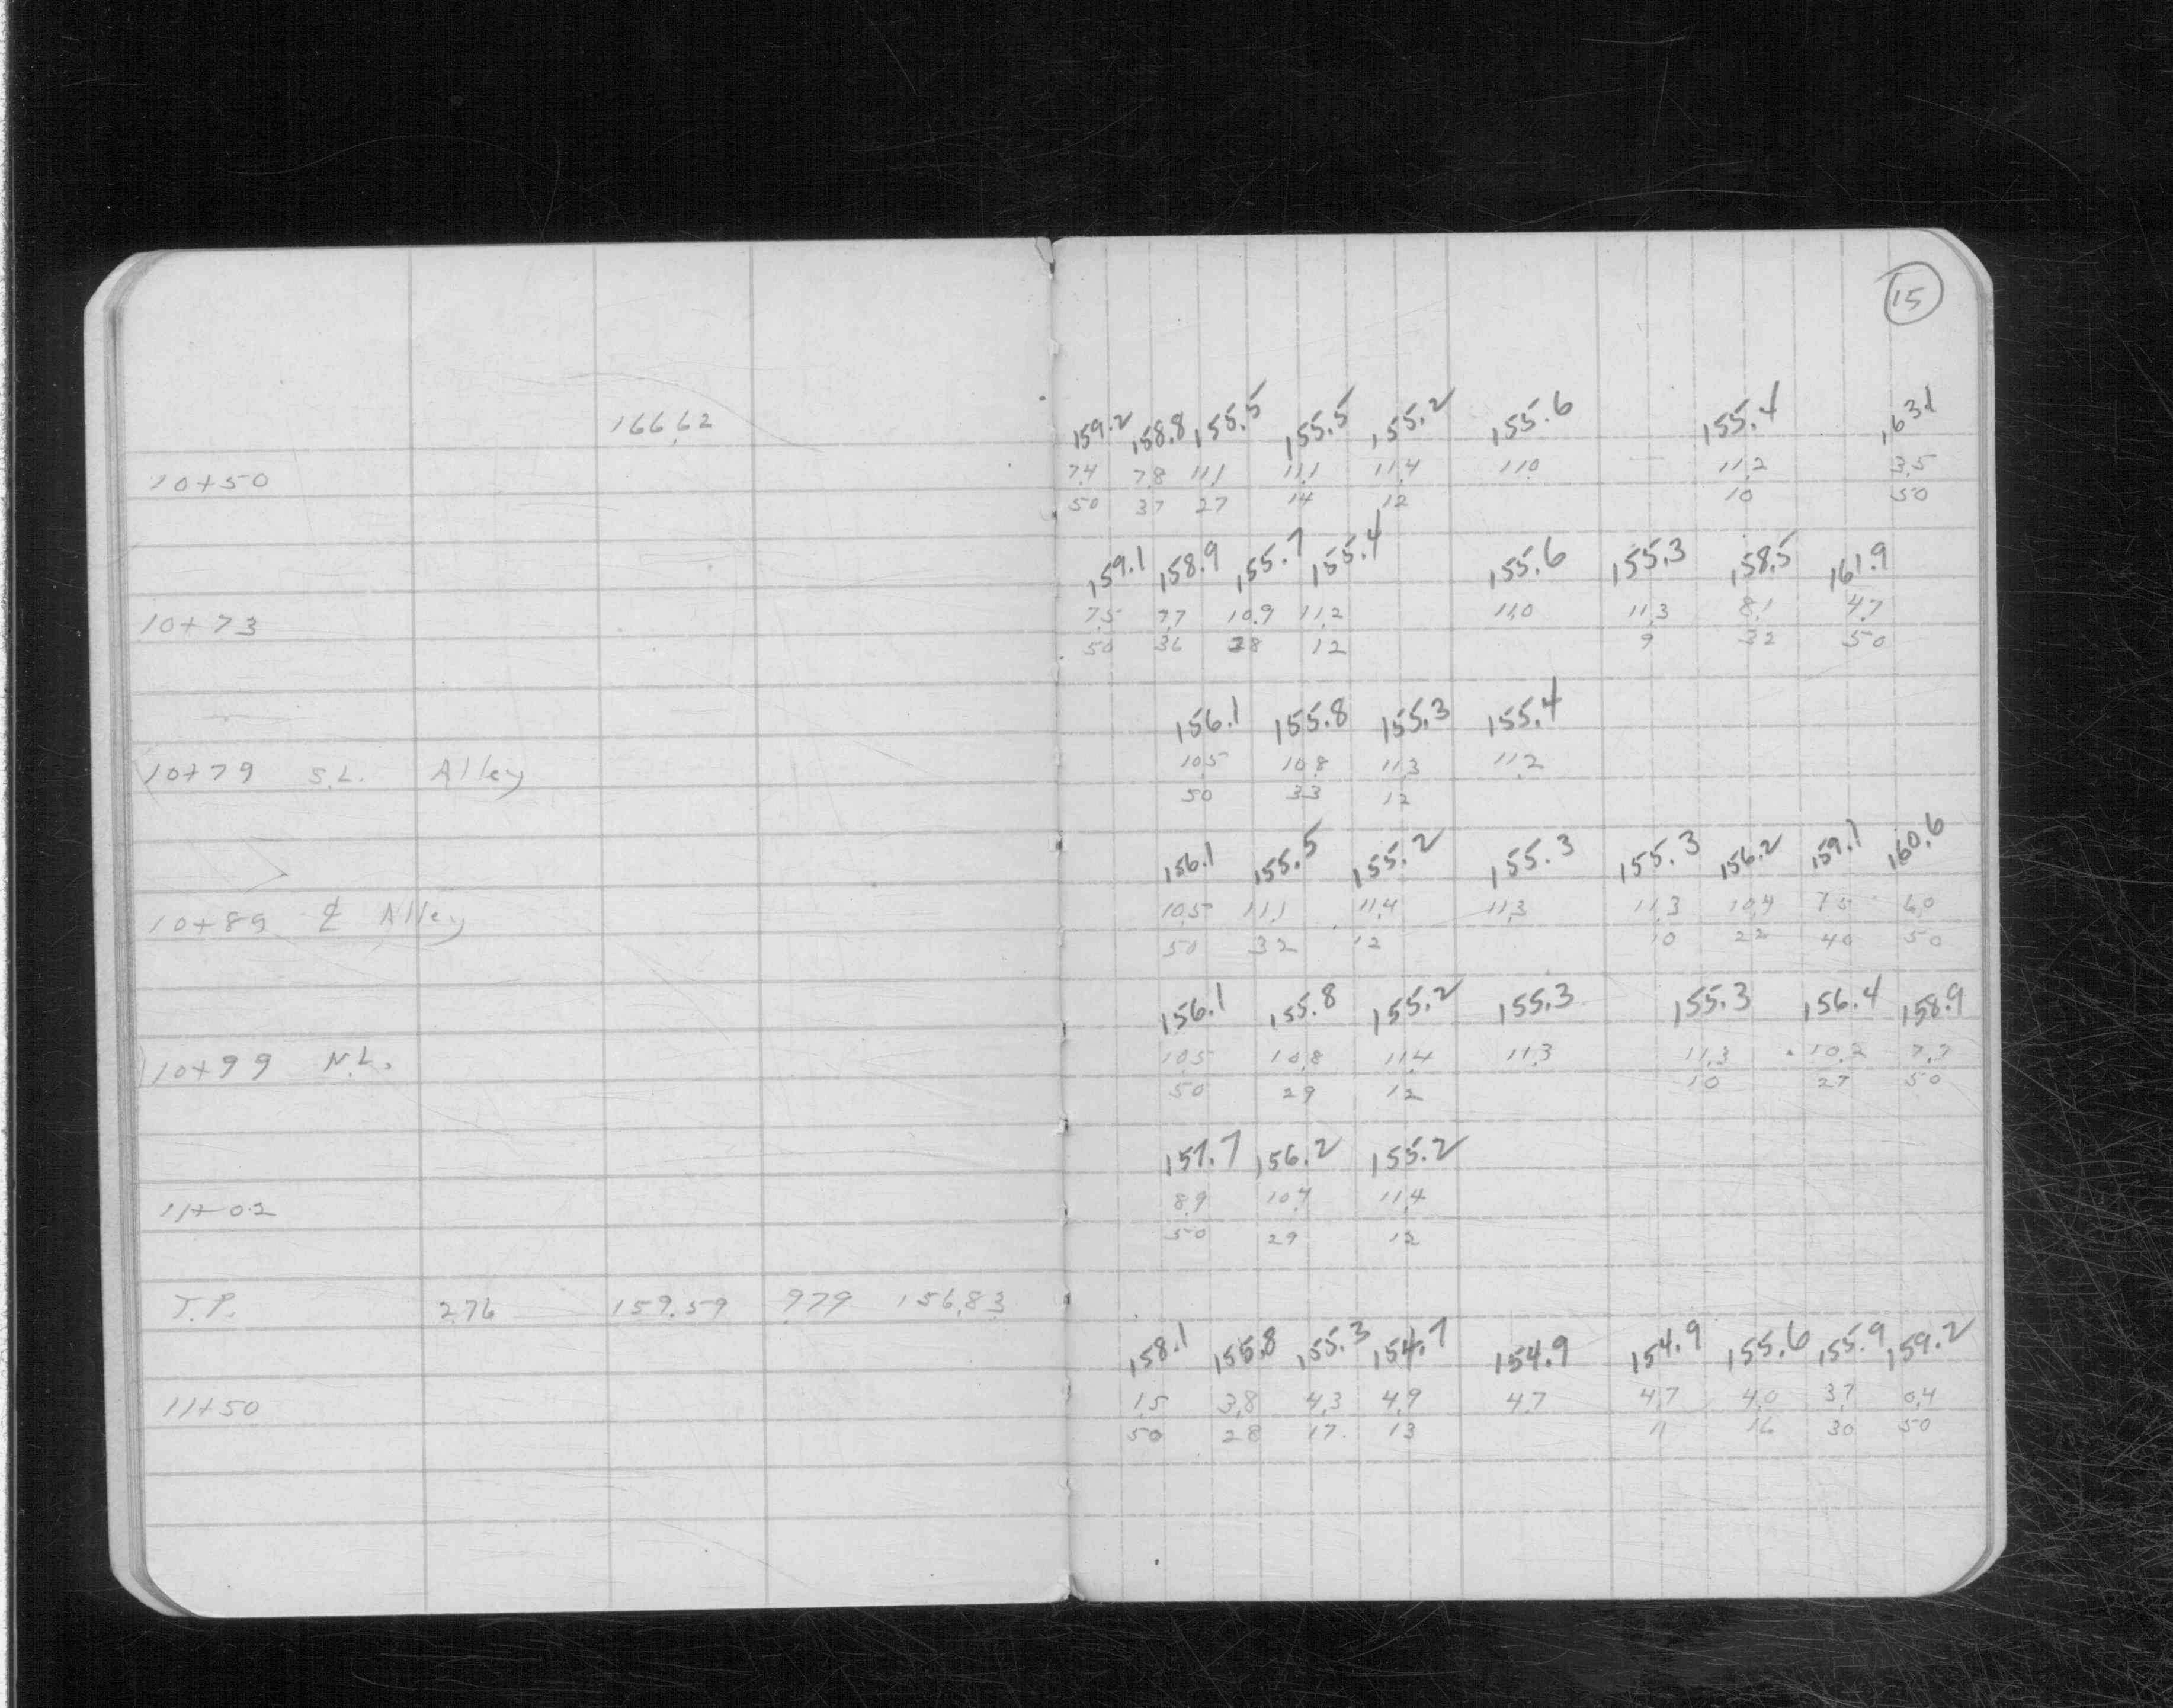 15
166.62
159.2 158.8 155.5 155.5 155.2 155.6 155.4 163.1
10+50 7.4 7.8 11.1 11.1 11.4 11.0 11.2 3.5
50 37 27 14 12 10 50
159.1 158.9 155.7 155.4 155.6 155.3 158.5 161.9
10+73 7.5 7.7 10.9 11.2 11.0 11.3 8.1 4.7
50 36 28 12 9 32 50
156.1 155.8 155.3 155.4
10+79 S.L. Alley 10.5 10.8 11.3 11.2
50 33 12
156.1 155.5 155.2 155.3 155.3 156.2 159.1 160.6
10+89 ℄ Alley 10.5 11.1 11.4 11.3 11.3 10.4 7.5 6.0
50 32 12 10 22 40 50
156.1 155.8 155.2 155.3 155.3 156.4 158.9
10+99 N.L. 10.5 10.8 11.4 11.3 11.3 10.2 7.7
50 29 12 10 27 50
157.7 156.2 155.2
11+02 8.9 10.4 11.4
50 29 12
T.P. 2.76 159.59 9.79 156.83
158.1 155.8 155.3 154.7 154.9 154.9 155.6 155.9 159.2
11+50 1.5 3.8 4.3 4.9 4.7 4.7 4.0 3.7 0.4
50 28 17 13 11 16 30 50